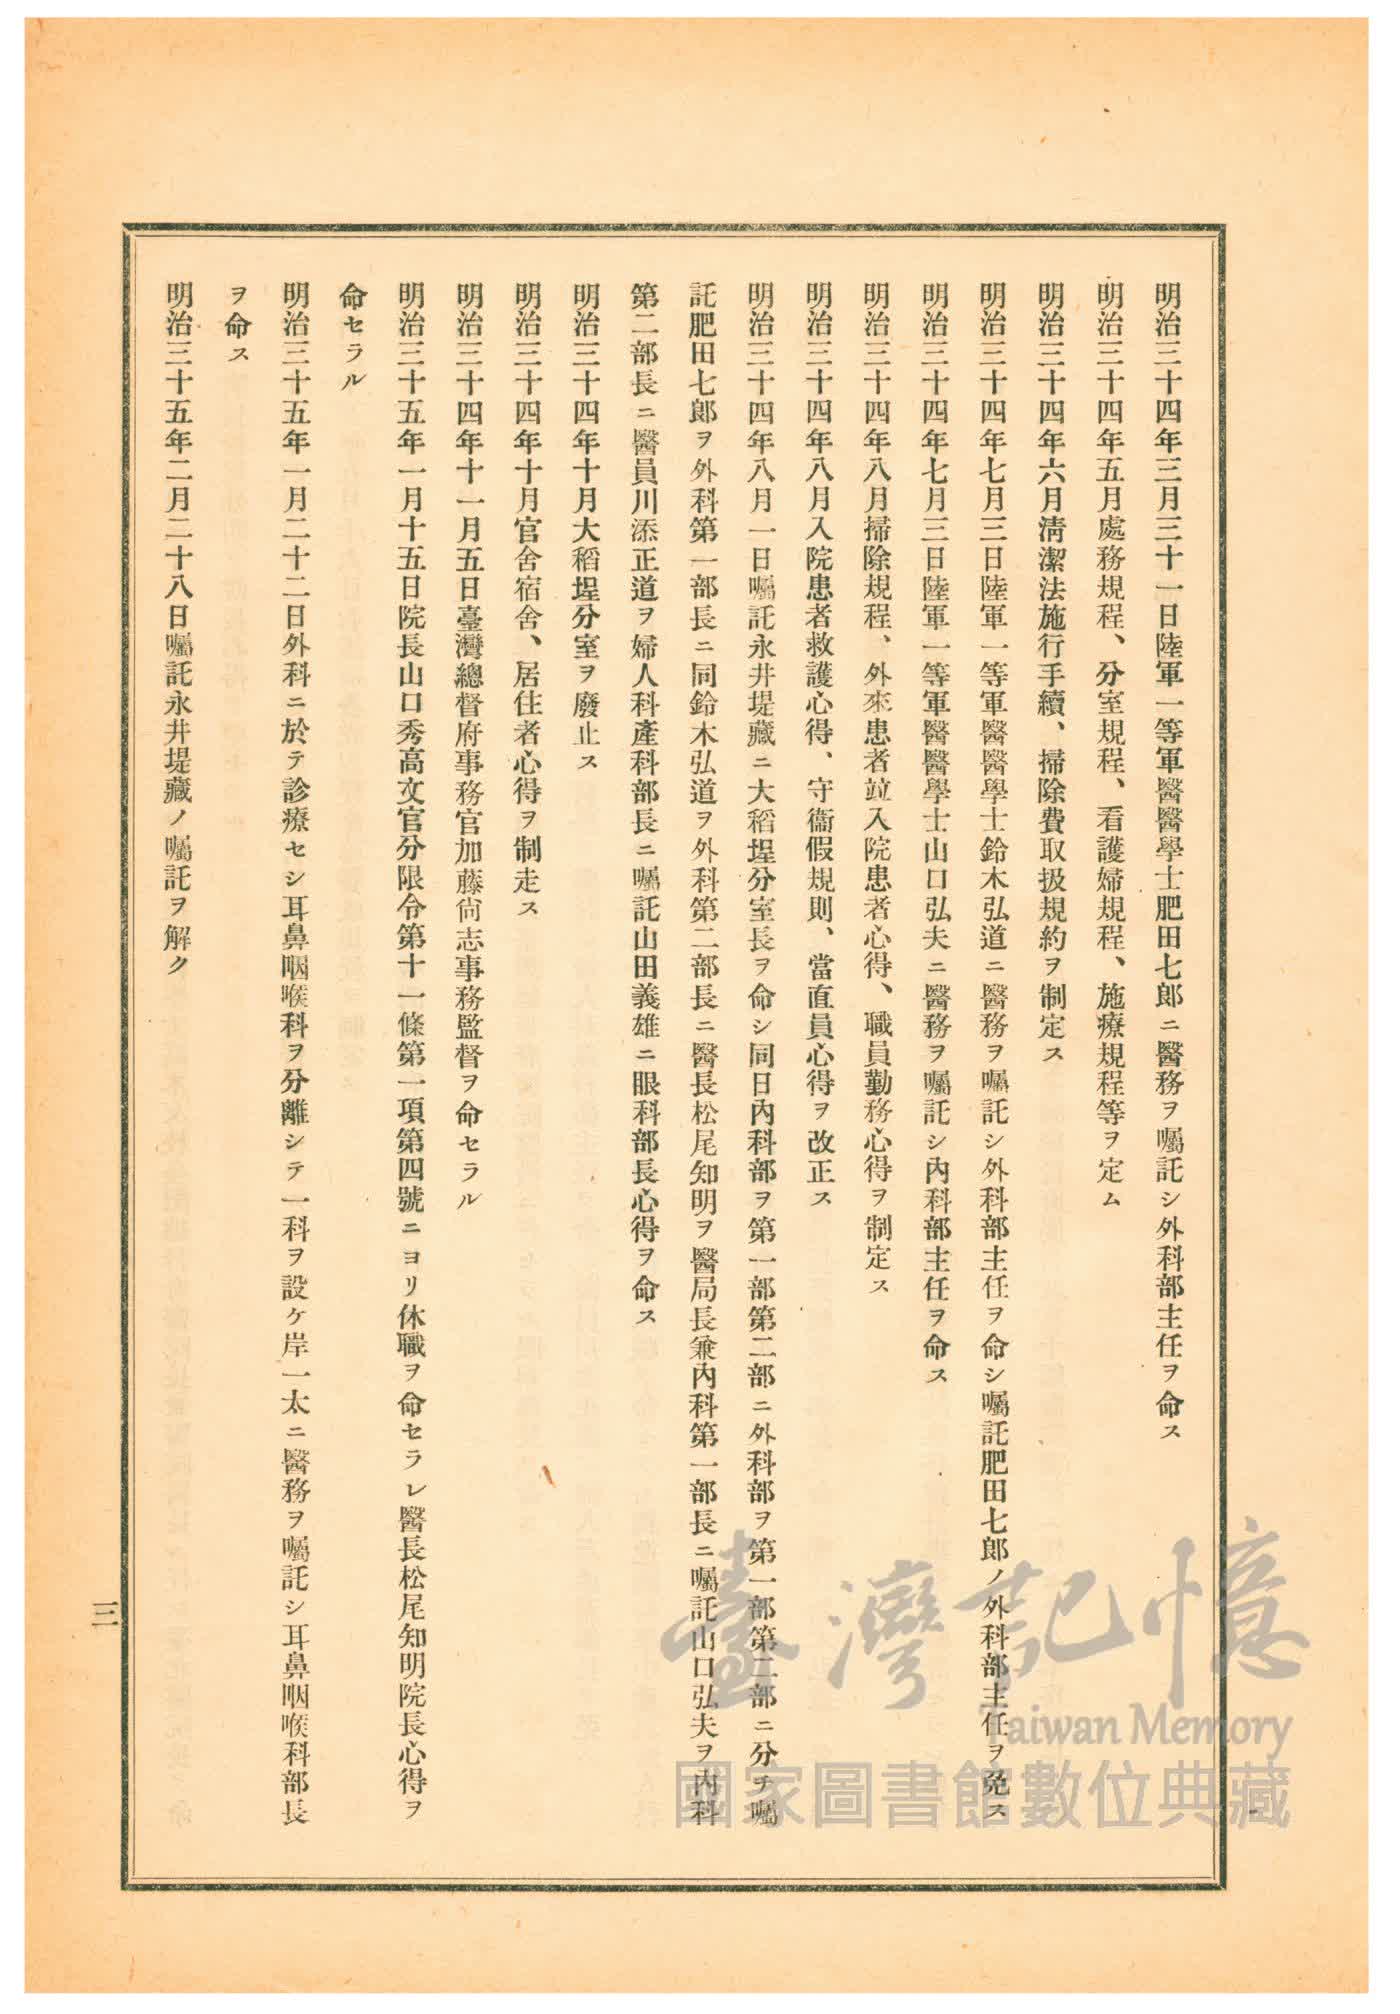 明治三十四年三月三十一日陸軍一等軍醫醫學士肥田七郎ニ醫務ヲ囑託シ外科部主任ヲ命ス
明治三十四年五月處務規程、分室規程、看護婦規程、施療規程等ヲ定ム
明治三十四年六月淸潔法施行手續、掃除費取扱規約ヲ制定ス
明治三十四年七月三日陸軍一等軍醫醫學士鈴木弘道ニ醫務ヲ囑託シ外科部主任ヲ命シ囑託肥田七郎ノ外科部主任ヲ免ス
明治三十四年七月三日陸軍一等軍醫醫學士山口弘夫ニ醫務ヲ囑託シ內科部主任ヲ命ス
明治三十四年八月掃除規程、外來患者竝入院患者心得、職員勤務心得ヲ制定ス
明治三十四年八月入院患者救護心得、守衞假規則、當直員心得ヲ改正ス
明治三十四年八月一日囑託永井堤藏ニ大稻埕分室長ヲ命シ同日內科部ヲ第一部第二部ニ外科部ヲ第一部第二部ニ分チ囑
託肥田七郎ヲ外科第一部長ニ同鈴木弘道ヲ外科第二部長ニ醫長松尾知明ヲ醫局長兼內科第一部長ニ囑託山口弘夫ヲ內科
第二部長ニ醫員川添正道ヲ婦人科產科部長ニ囑託山田義雄ニ眼科部長心得ヲ命ス
明治三十四年十月大稻埕分室ヲ廢止ス
明治三十四年十月官舍宿舍、居住者心得ヲ制走ス
明治三十四年十一月五日臺灣總督府事務官加藤尙志事務監督ヲ命セラル
明治三十五年一月十五日院長山口秀高文官分限令第十一條第一項第四號ニヨリ休職ヲ命セラレ醫長松尾知明院長心得ヲ
命セラル
明治三十五年一月二十二日外科ニ於テ診療セシ耳鼻咽喉科ヲ分離シテ一科ヲ設ケ岸一太ニ醫務ヲ囑託シ耳鼻咽喉科部長
ヲ命ス
明治三十五年二月二十八日囑託永井堤藏ノ囑託ヲ解ク
三
臺灣記憶
Taiwan Memory
國家圖書館數位典藏